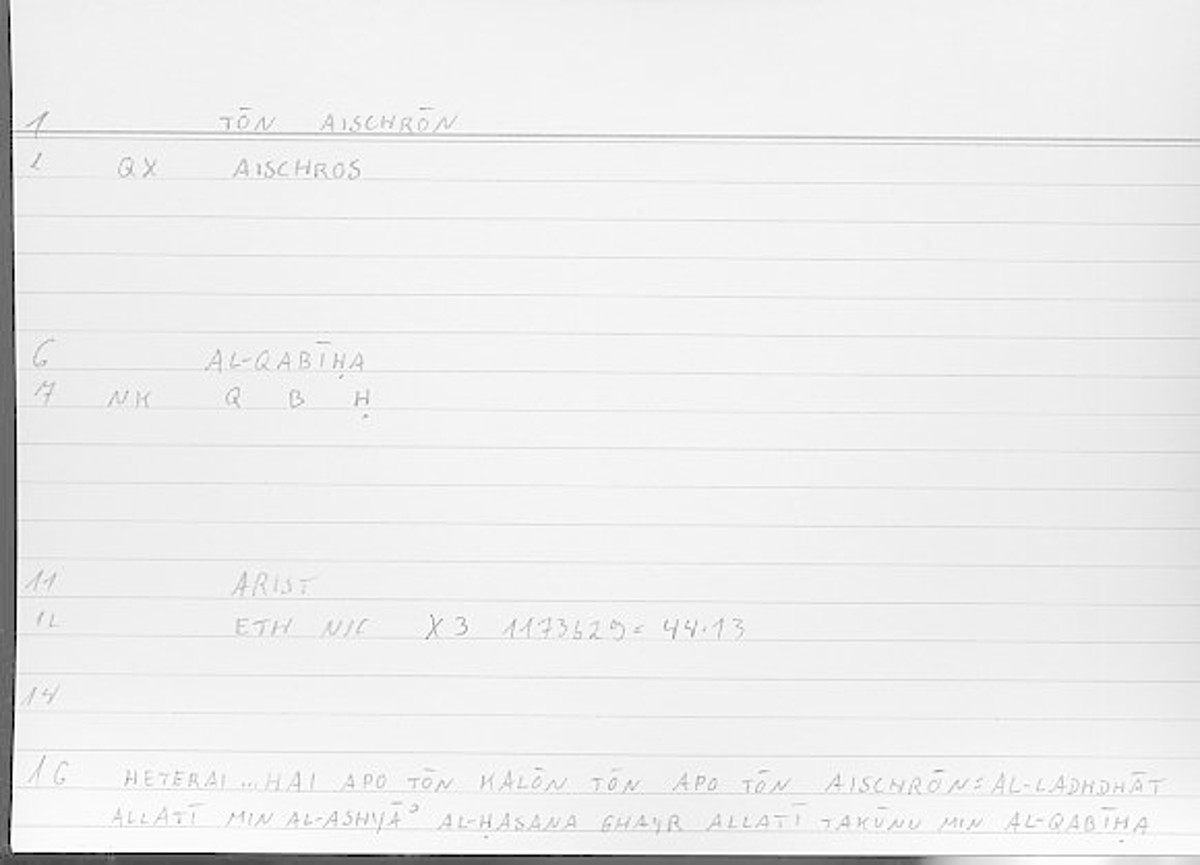 1 TŌN AISCHRŌN
2 QX AISCHROS
6 AL-QABĪḤA
7 NK Q B Ḥ
11 ARIST
12 ETH NIC X3 1173b29= 44.13
14
16 HETERAI...HAI APO TŌN KALŌN TŌN APO TŌN AISCHRŌN=AL-LADHDHĀT
ALLATĪ MIN AL-ASHYĀʾ AL-ḤASANA GHAYR ALLATĪ TAKŪNU MIN AL-QABĪḤA